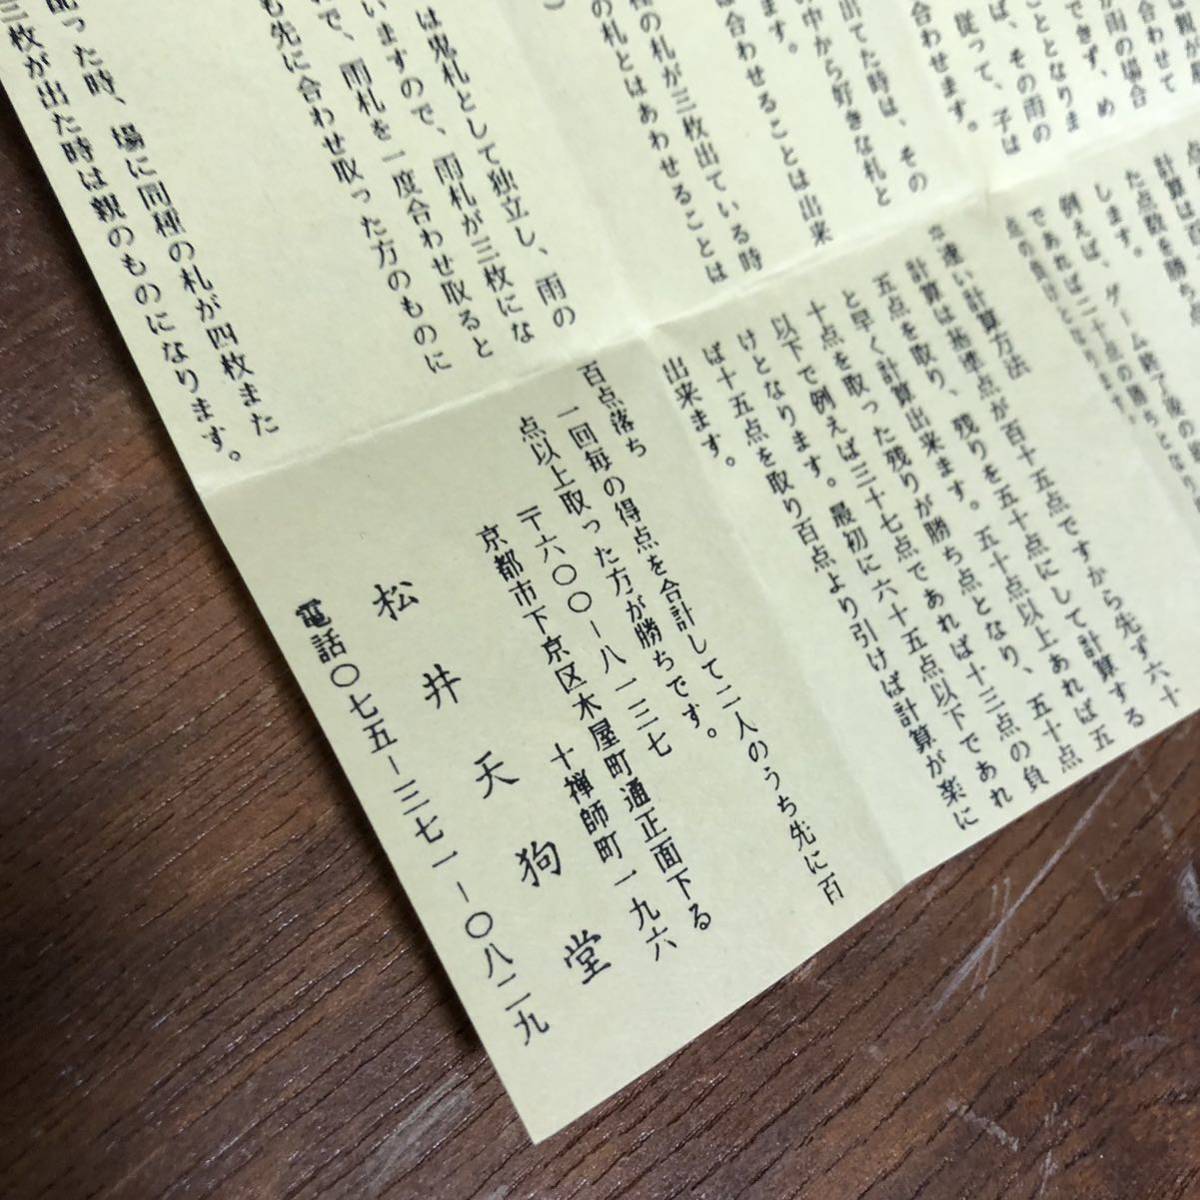 は親が最
合わせて
こととなりま
が雨の場合
できず、め
ば、その雨の
従って、子は
合わせます。
出てた時は、その
中から好きな札と
は合わせることは出来
ます。
種の札が三枚出ている時
の札とはあわせることは
は鬼札として独立し、雨の
いますので、雨札が三枚にな
で、雨札を一度合わせ取ると
も先に合わせ取った方のものに
配った時、場に同種の札が四枚また
三枚が出た時は親のものになります。
計算は百
た点数を勝ち点
します。
例えば、ゲーム終了後の
であれば二十点の勝ちとなり
点の負けとなります。
速い計算方法
計算は基準点が百十五点ですから先ず六十
五点を取り、残りを五十点にして計算する
と早く計算出来ます。五十点以上あれば五
十点を取った残りが勝ち点となり、五十点
以下で例えば三十七点であれば十三点の負
けとなります。最初に六十五点以下であれ
ば十五点を取り百点より引けば計算が楽に
出来ます。
百点落ち
一回毎の得点を合計して二人のうち先に百
点以上取った方が勝ちです。
〒六〇〇-八一三七
京都市下京区木屋町通正面下る
十禅師町一九六
松井天狗堂
電話〇七五-三七一-〇八二九